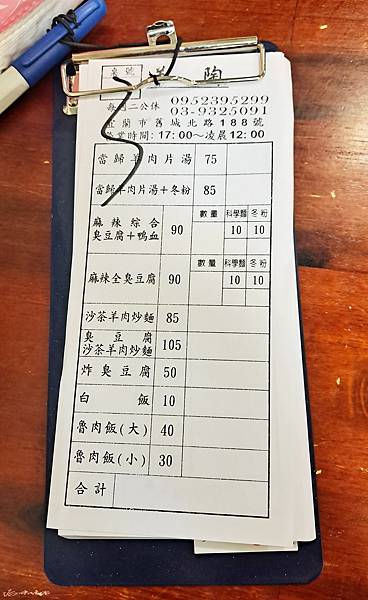 桌號
5
陶
每
二公休
0952395299
03-9325091
宜蘭市舊城北路188號
營業時間:17:00~凌晨12:00
當歸羊肉片湯 75
當歸羊肉片湯+冬粉 85
麻辣綜合
臭豆腐+鴨血 90 數量 科學麵 冬粉
10 10
麻辣全臭豆腐 90 數量 科學麵 冬粉
10 10
沙茶羊肉炒麵 85
臭豆腐
沙茶羊肉炒麵 105
炸臭豆腐 50
白飯 10
魯肉飯(大) 40
魯肉飯(小) 30
合計